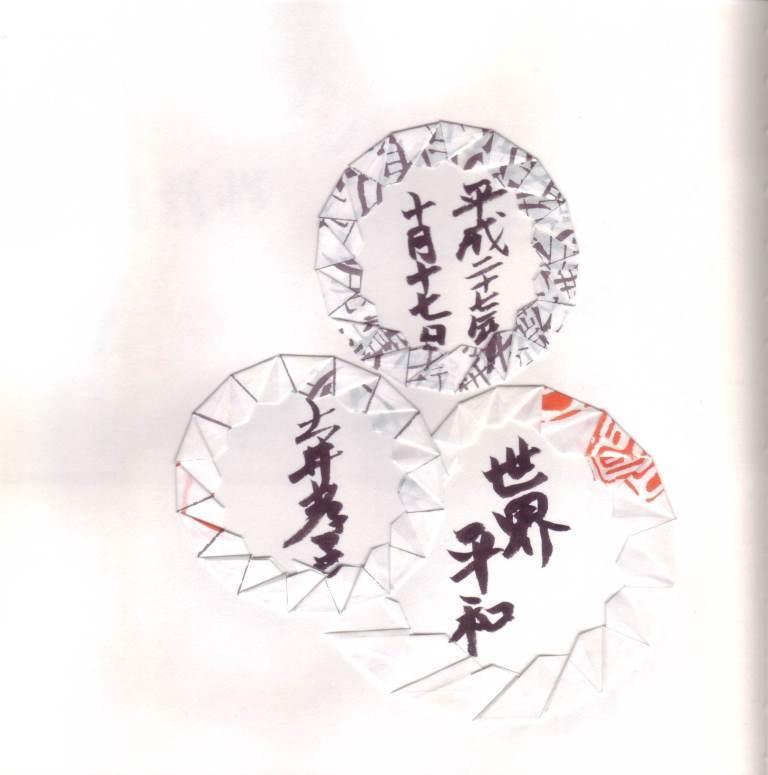 平成二十七年
十月十七日
土井孝子
世界
平和